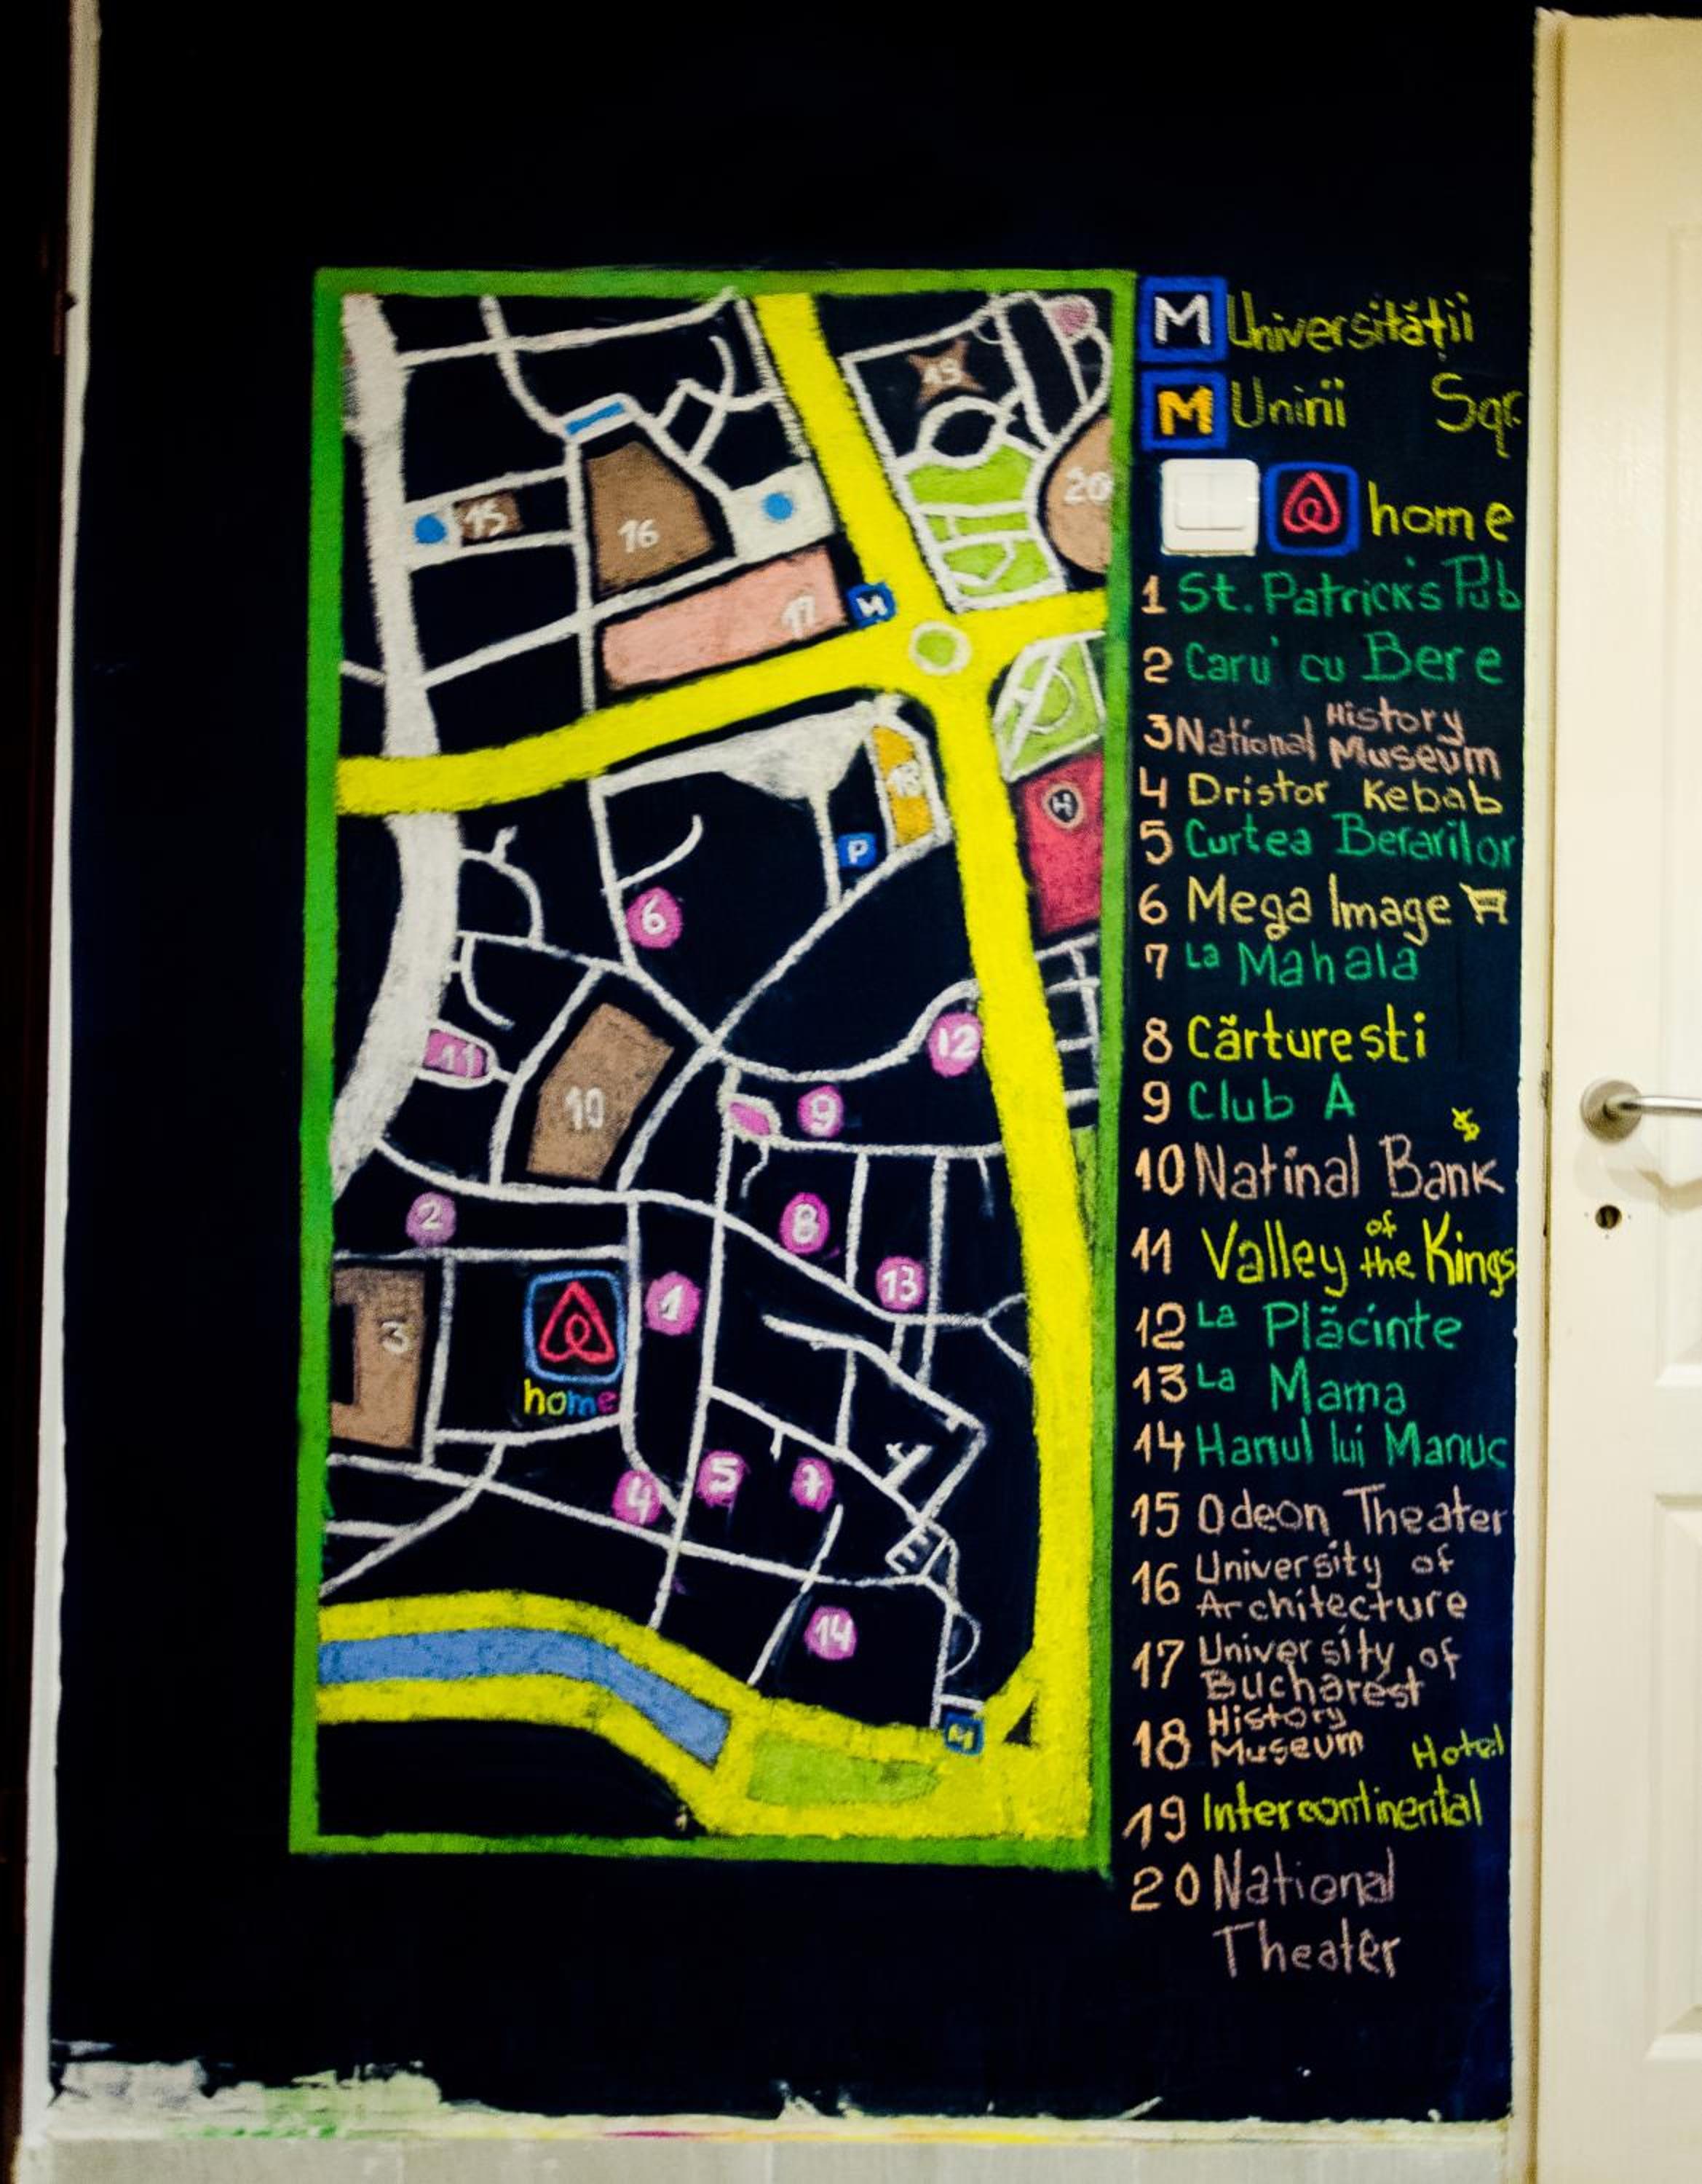 M Universității
M Unirii Sqr.
home
1 St. Patrick's Pub
2 Caru' cu Bere
3 National History Museum
4 Dristor Kebab
5 Curtea Berarilor
6 Mega Image
7 La Mahala
8 Cărturesti
9 Club A
10 Natinal Bank $
11 Valley of the Kings
12 La Plăcinte
13 La Mama
14 Hanul lui Manuc
15 Odeon Theater
16 University of
Architecture
17 University of
Bucharest
18 History
Museum
19 Intercontinental Hotel
20 National
Theater
19
20
15
16
17
M
18
H
P
6
12
11
10
9
2
8
13
1
3
home
5
7
4
14
M